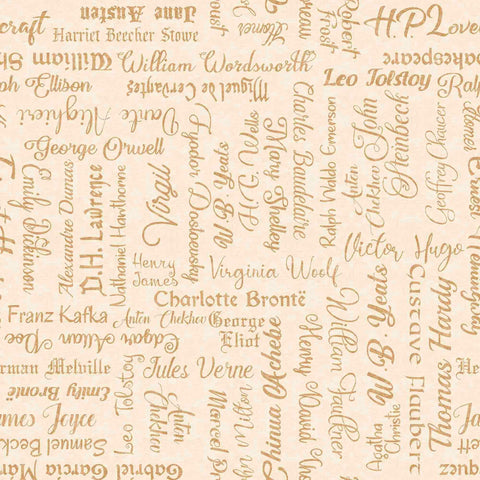 craft
Jane Austen
Harriet Beecher Stowe
William Sh
William Wordsworth
ph Ellison
Miguel de Cervantes
Dante Alighieri
George Orwell
Homer
Robert
Frost
H.P. Love
akespeare
Leo Tolstoy
Ral
Charles Baudelaire
Ralph Waldo Emerson
Anton
Chekhov
John
Steinbeck
Geoffrey Chaucer
Ernest
Hemingway
Emily Dickinson
Alexandre Dumas
D.H. Lawrence
Nathaniel Hawthorne
Virgil
Fyodor Dostoevsky
W. B. Yeats
H.G. Wells
Mary Shelley
Henry
James
Virginia Woolf
Victor Hugo
Charlotte Brontë
Franz Kafka
Anton Chekhov
George
Eliot
Edgar Allan Poe
rman Melville
Jules Verne
Emily Brontë
mes Joyce
Samuel Beck
Gabriel Garcia Mar
Leo Tolstoy
Anton
Chekhov
Marcel Pr
hn Milton
Chinua Achebe
Henry David Tho
William Faulkner
W. B. Yeats
Agatha
Christie
Gustave Flaubert
Thomas Hardy
He
Ja